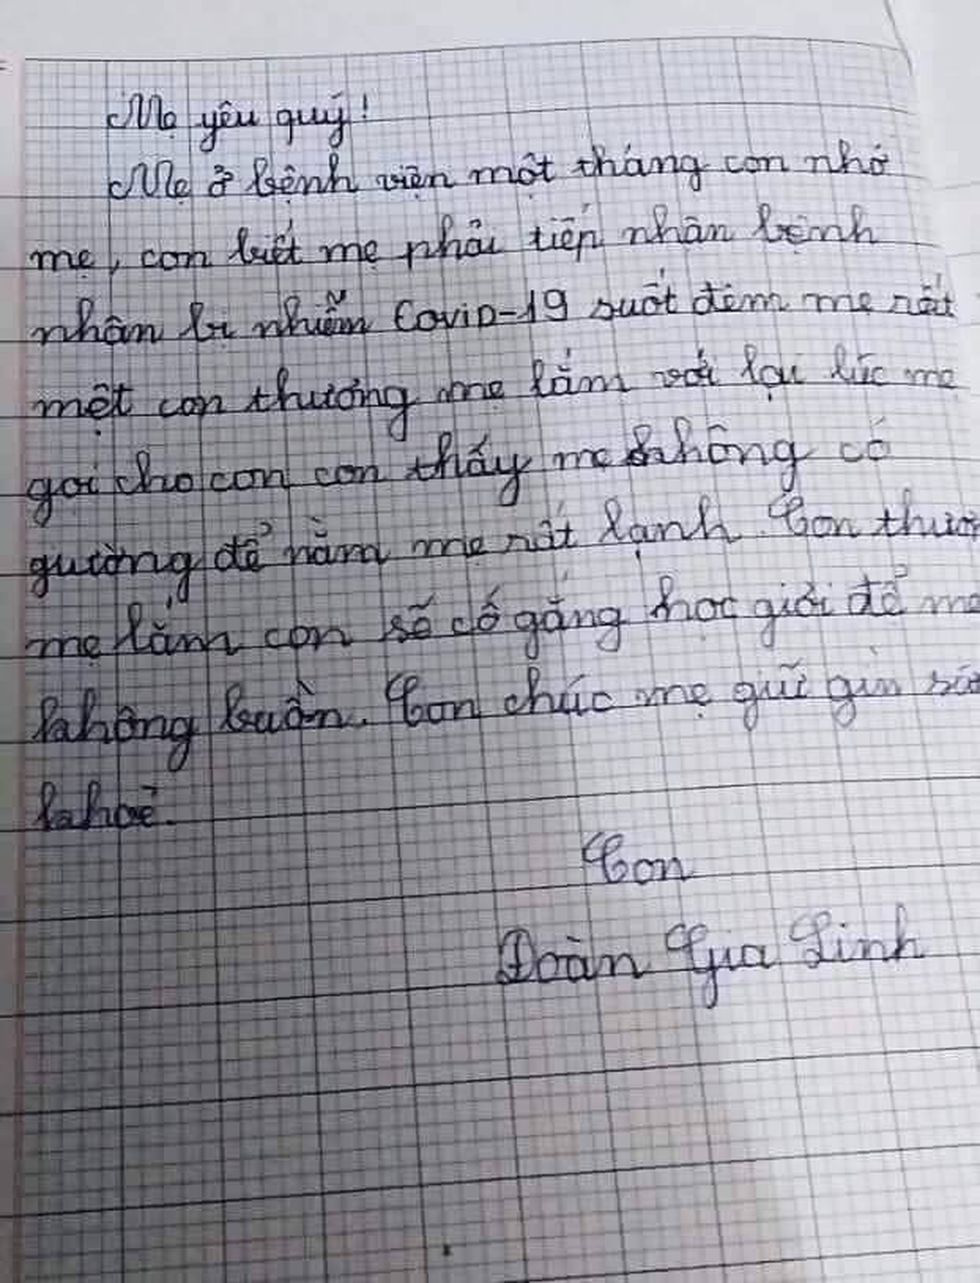 Mẹ yêu quý!
Mẹ ở bệnh viện một tháng con nhớ
mẹ, con biết mẹ phải tiếp nhân bệnh
nhận bị nhiễm Covid-19 suốt đêm mẹ rất
mệt con thương mẹ lắm với lại lúc mẹ
gọi cho con con thấy mẹ không có
gường để nằm mẹ rất lạnh. Con thươ
mẹ lắm con sẽ cố gắng học giỏi để mẹ
không buồn. Con chúc mẹ giữ gìn sứ
khoẻ.
Con
Đoàn Gia Linh